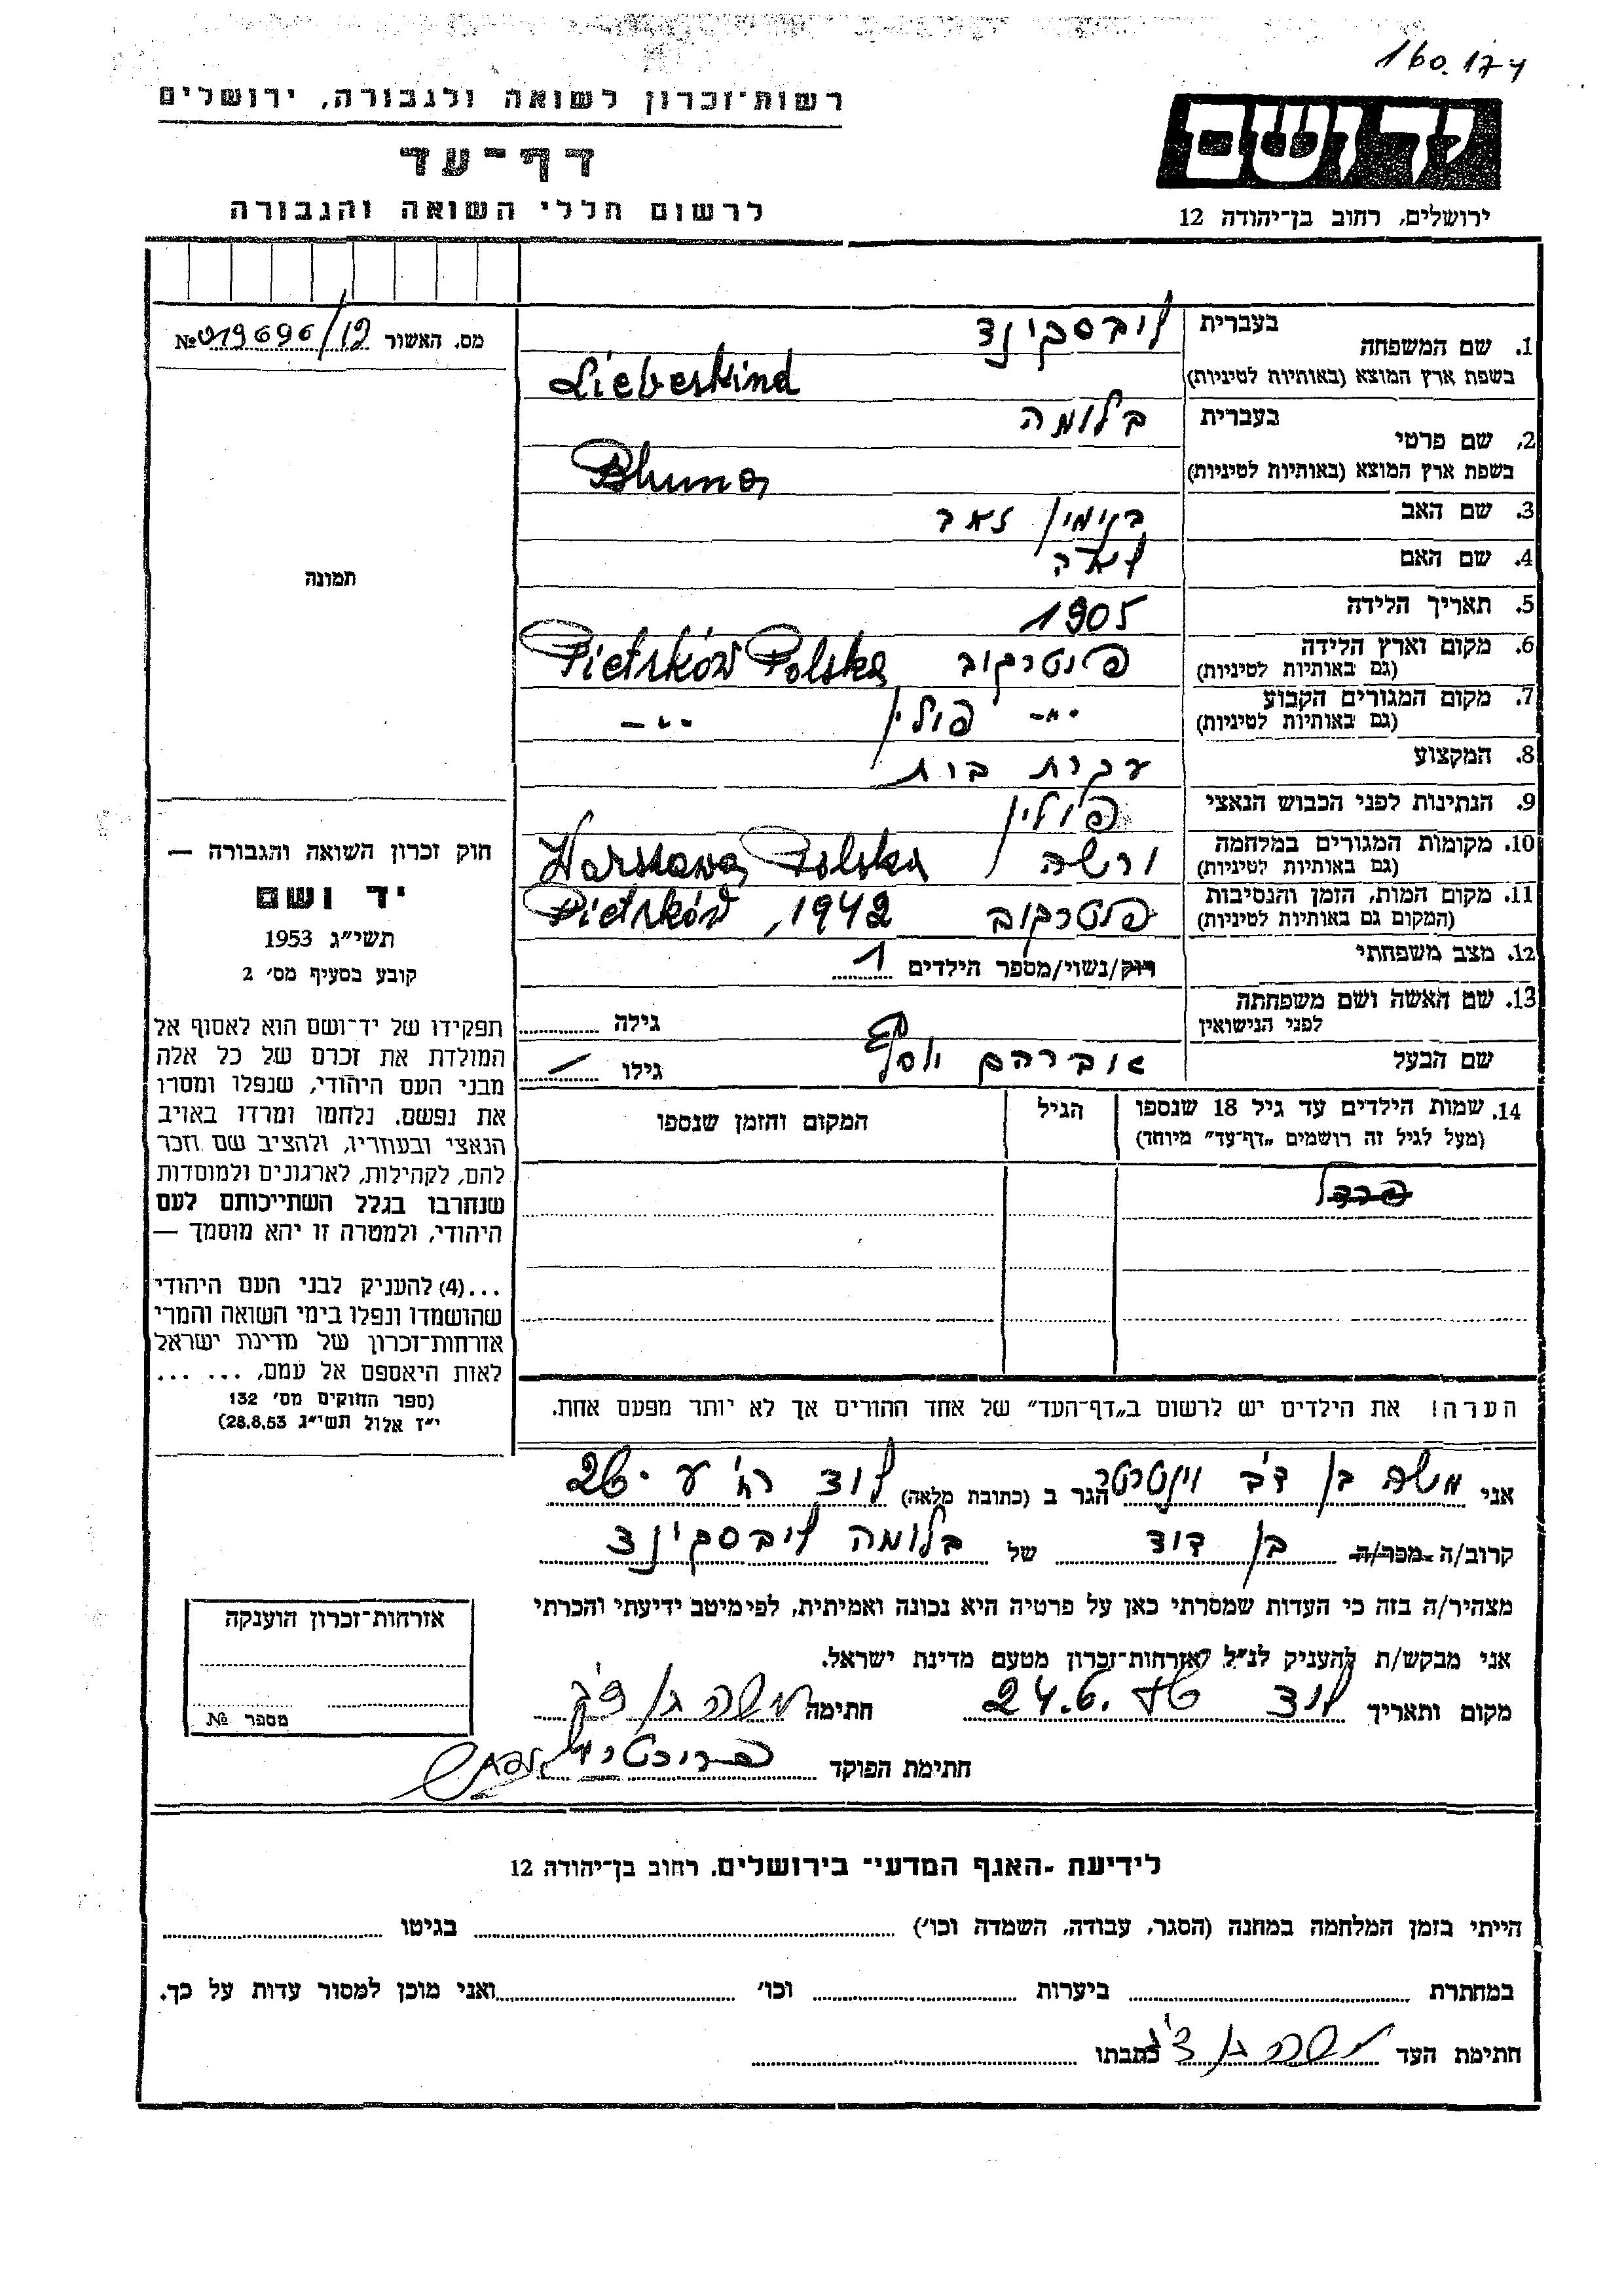 160.174
רשות־זכרון לשואה ולגבורה, ירושלים
יד ושם
דף־עד
לרשום חללי השואה והגבורה
ירושלים, רחוב בן־יהודה 12
מס. האשור № 019696/19
1. שם המשפחה בעברית ליבסקינד
בשפת ארץ המוצא (באותיות לטיניות) Liebeskind
2. שם פרטי בעברית בלומה
בשפת ארץ המוצא (באותיות לטיניות) Bluma
3. שם האב בנימין זאב
4. שם האם
5. תאריך הלידה 1905
6. מקום וארץ הלידה (גם באותיות לטיניות) פיטרקוב Pietrków Polska
7. מקום המגורים הקבוע (גם באותיות לטיניות) -"- פולין -"-
8. המקצוע עקרת בית
9. הנתינות לפני הכבוש הנאצי פולין
10. מקומות המגורים במלחמה (גם באותיות לטיניות) ורשה Warszawa Polska
11. מקום המות, הזמן והנסיבות (המקום גם באותיות לטיניות) פיטרקוב Pietrków, 1942
12. מצב משפחתי רוק/נשוי/מספר הילדים 1
13. שם האשה ושם משפחתה לפני הנישואין גילה
שם הבעל אברהם יוסף גילו
14. שמות הילדים עד גיל 18 שנספו
(מעל לגיל זה רושמים „דף־עד" מיוחד)
הגיל
המקום והזמן שנספו
תמונה
חוק זכרון השואה והגבורה —
יד ושם
תשי"ג 1953
קובע בסעיף מס׳ 2
תפקידו של יד־ושם הוא לאסוף אל
המולדת את זכרם של כל אלה
מבני העם היהודי, שנפלו ומסרו
את נפשם. נלחמו ומרדו באויב
הנאצי ובעוזריו, ולהציב שם וזכר
להם, לקהילות, לארגונים ולמוסדות
שנחרבו בגלל השתייכותם לעם
היהודי, ולמטרה זו יהא מוסמך —
...(4) להעניק לבני העם היהודי
שהושמדו ונפלו בימי השואה והמרי
אזרחות־זכרון של מדינת ישראל
לאות היאספם אל עמם, ... ...
(ספר החוקים מס׳ 132
י"ז אלול תשי"ג 28.8.53)
הערה! את הילדים יש לרשום ב„דף־העד" של אחד ההורים אך לא יותר מפעם אחת.
אני משה בן דב הגר ב (כתובת מלאה) לוד
קרוב/ה מכר/ה בן דוד של בלומה ליבסקינד
מצהיר/ה בזה כי העדות שמסרתי כאן על פרטיה היא נכונה ואמיתית, לפי מיטב ידיעתי והכרתי
אני מבקש/ת להעניק לנ"ל אזרחות־זכרון מטעם מדינת ישראל.
מקום ותאריך לוד 24.6. חתימה משה בן דב
חתימת הפוקד
אזרחות־זכרון הוענקה
מספר №
לידיעת ־האגף המדעי־ בירושלים, רחוב בן־יהודה 12
הייתי בזמן המלחמה במחנה (הסגר, עבודה, השמדה וכו׳) בגיטו
במחתרת ביערות וכו׳ ואני מוכן למסור עדות על כך.
חתימת העד משה בן דב כתבתו